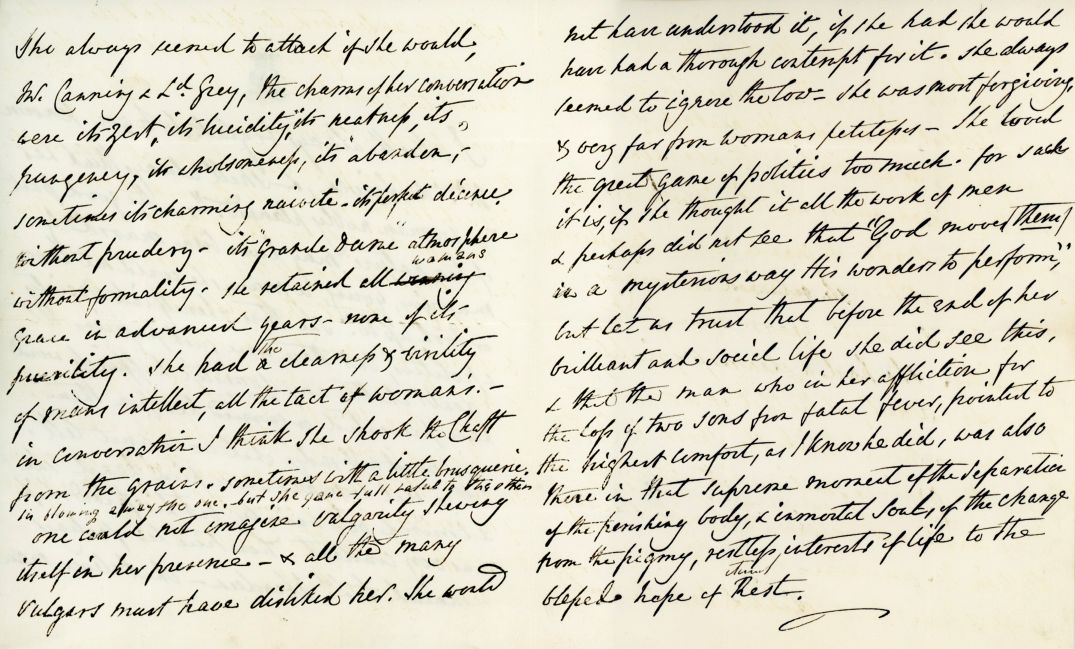 She always seemed to attach if she would,
Mr. Canning & Ld. Grey, the charms of her conversation
were its zest, its lucidity, its neatness, its
pungency, its wholesomeness, its abandon,
sometimes its charming naiveté - its perfect décence
without prudery - its "Grande Dame" atmosphere
without formality. She retained all womans
grace in advanced years - none of its
puerility. She had the clearness & virility
of mans intellect, all the tact of womans. -
in conversation I think she shook the Chaff
from the grains. sometimes with a little brusquerie
in blowing away the one, but she gave full value to the other
one could not imagine vulgarity shewing
itself in her presence - & all the many
vulgars must have disliked her. She would
not have understood it, if she had she would
have had a thorough contempt for it. She always
seemed to ignore the low - She was most forgiving,
& very far from womans petitesses - She loved
the great game of politics too much. for sad
it is, if she thought it all the work of men
& perhaps did not see that "God moves (them)
in a mysterious way His wonders to perform,"
but let us trust that before the end of her
brilliant and social life she did see this,
& that the man who in her affliction for
the loss of two sons from fatal fever, pointed to
the highest comfort, as I know he did, was also
there in that supreme moment of the separation
of the perishing body, & immortal Soul, of the change
from the pigmy, restless interests of life to the
blessed hope of Rest.